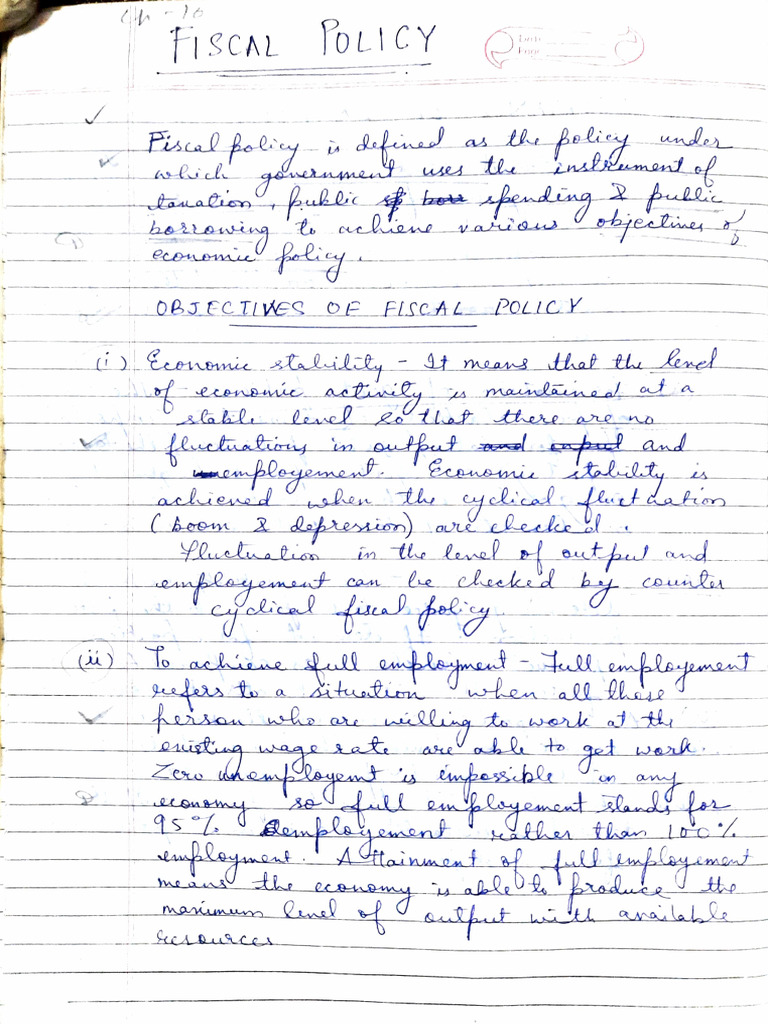 Ch - 10
FISCAL POLICY
Date
Page
Fiscal policy is defined as the policy under
which government uses the instrument of
taxation, public spending & public
borrowing to achieve various objectives of
economic policy.
OBJECTIVES OF FISCAL POLICY
(i) Economic stability - It means that the level
of economic activity is maintained at a
stable level so that there are no
fluctuations in output and
employement. Economic stability is
achieved when the cyclical fluctuation
(boom & depression) are checked.
Fluctuation in the level of output and
employement can be checked by counter
cyclical fiscal policy
(ii) To achieve full employment - Full employement
refers to a situation when all those
person who are willing to work at the
existing wage rate are able to get work.
Zero unemployemt is impossible in any
economy so full employement stands for
95% employement rather than 100%
employment. Attainment of full employement
means the economy is able to produce the
maximum level of output with available
resources